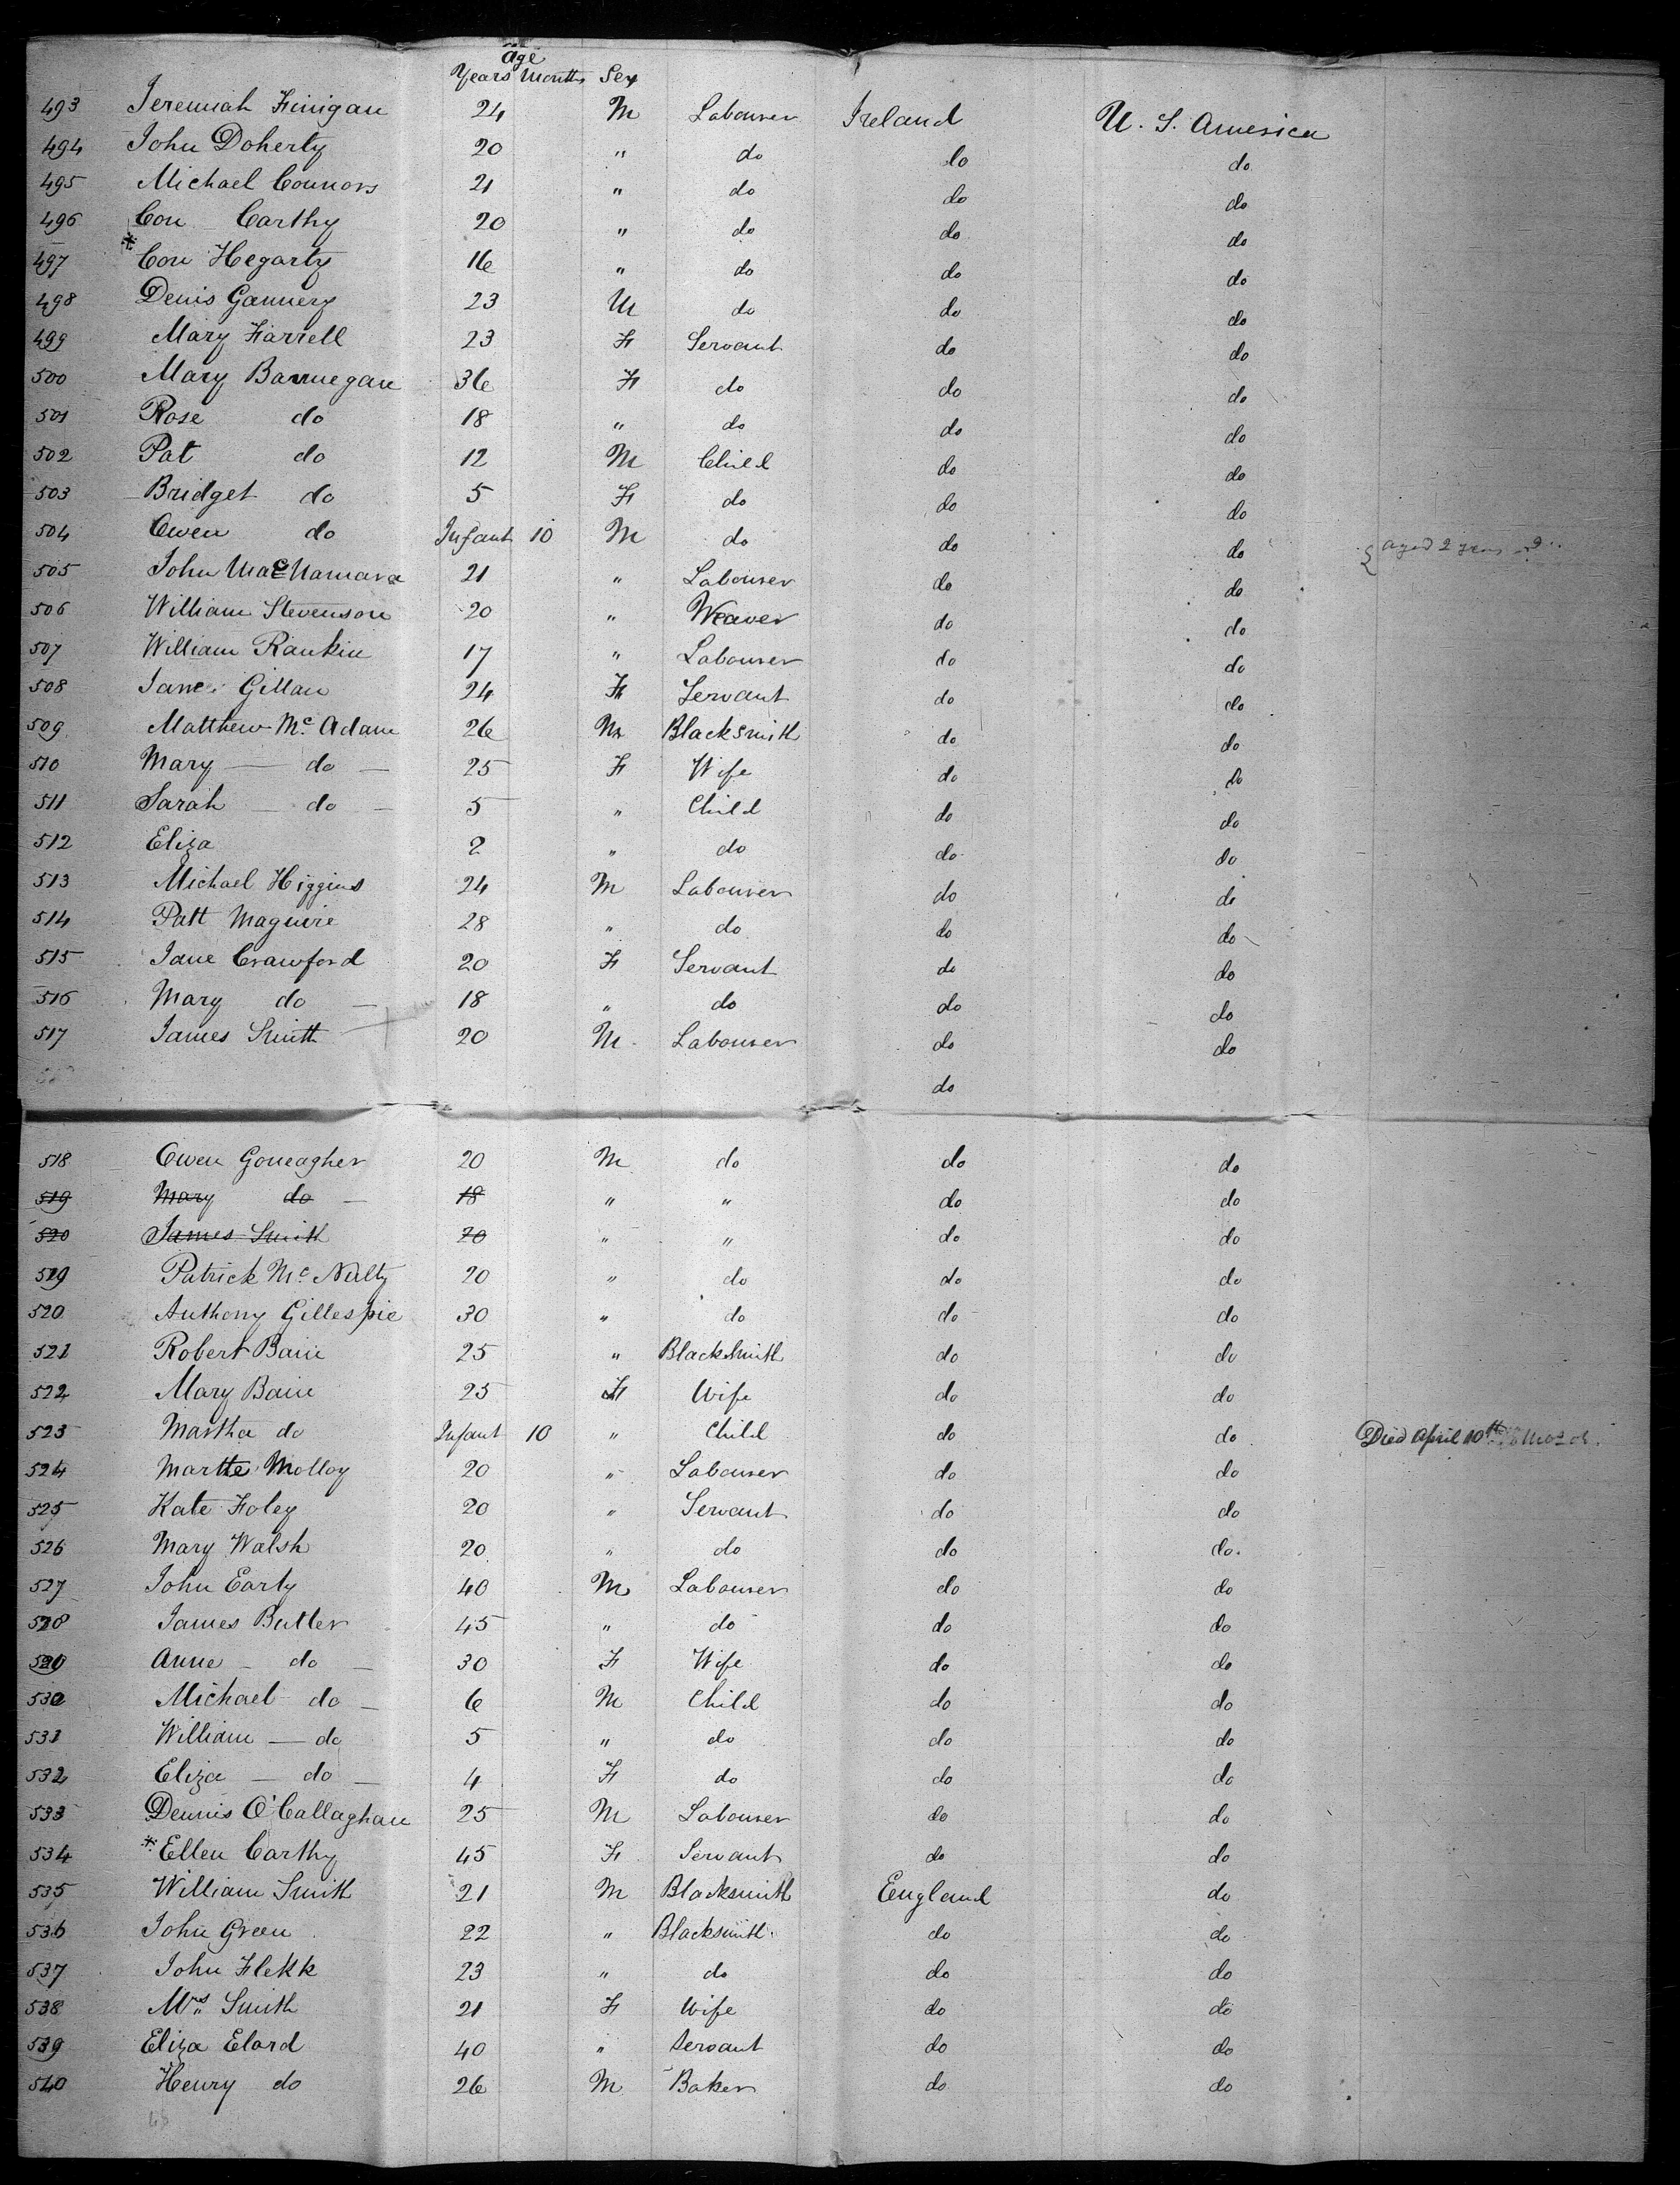 Age
Years Months Sex
493 Jeremiah Finigan 24 M Labourer Ireland U. S. America
494 John Doherty 20 " do do do
495 Michael Connors 21 " do do do
496 Con Carthy 20 " do do do
497 * Con Hegarty 16 " do do do
498 Denis Gannery 23 M do do do
499 Mary Farrell 23 F Servant do do
500 Mary Bannegan 36 F do do do
501 Rose do 18 " do do do
502 Pat do 12 M Child do do
503 Bridget do 5 F do do do
504 Owen do Infant 10 M do do do { aged 2 years
505 John MacNamara 21 " Labourer do do
506 William Stevenson 20 " Weaver do do
507 William Rankin 17 " Labourer do do
508 Jane Gillan 24 F Servant do do
509 Matthew Mc Adam 26 M Blacksmith do do
510 Mary — do — 25 F Wife do do
511 Sarah — do — 5 " Child do do
512 Eliza 2 " do do do
513 Michael Higgins 24 M Labourer do do
514 Patt Maguire 28 " do do do
515 Jane Crawford 20 F Servant do do
516 Mary do — 18 " do do do
517 James Smith 20 M Labourer do do
do
518 Owen Goneagher 20 M do do do
519 Mary do — 18 " " do do
520 James Smith 20 " " do do
519 Patrick Mc Nulty 20 " do do do
520 Anthony Gillespie 30 " do do do
521 Robert Bain 25 " Blacksmith do do
522 Mary Bain 25 F Wife do do
523 Martha do Infant 10 " Child do do Died April 10th
524 Marthe Molloy 20 " Labourer do do
525 Kate Foley 20 " Servant do do
526 Mary Walsh 20 " do do do.
527 John Early 40 M Labourer do do
528 James Butler 45 " do do do
529 Anne — do — 30 F Wife do do
530 Michael do — 6 M Child do do
531 William — do 5 " do do do
532 Eliza — do — 4 F do do do
533 Dennis O'Callaghan 25 M Labourer do do
534 * Ellen Carthy 45 F Servant do do
535 William Smith 21 M Blacksmith England do
536 John Green 22 " Blacksmith do do
537 John Flekk 23 " do do do
538 Mrs Smith 21 F Wife do do
539 Eliza Elard 40 " Servant do do
540 Henry do 26 M Baker do do